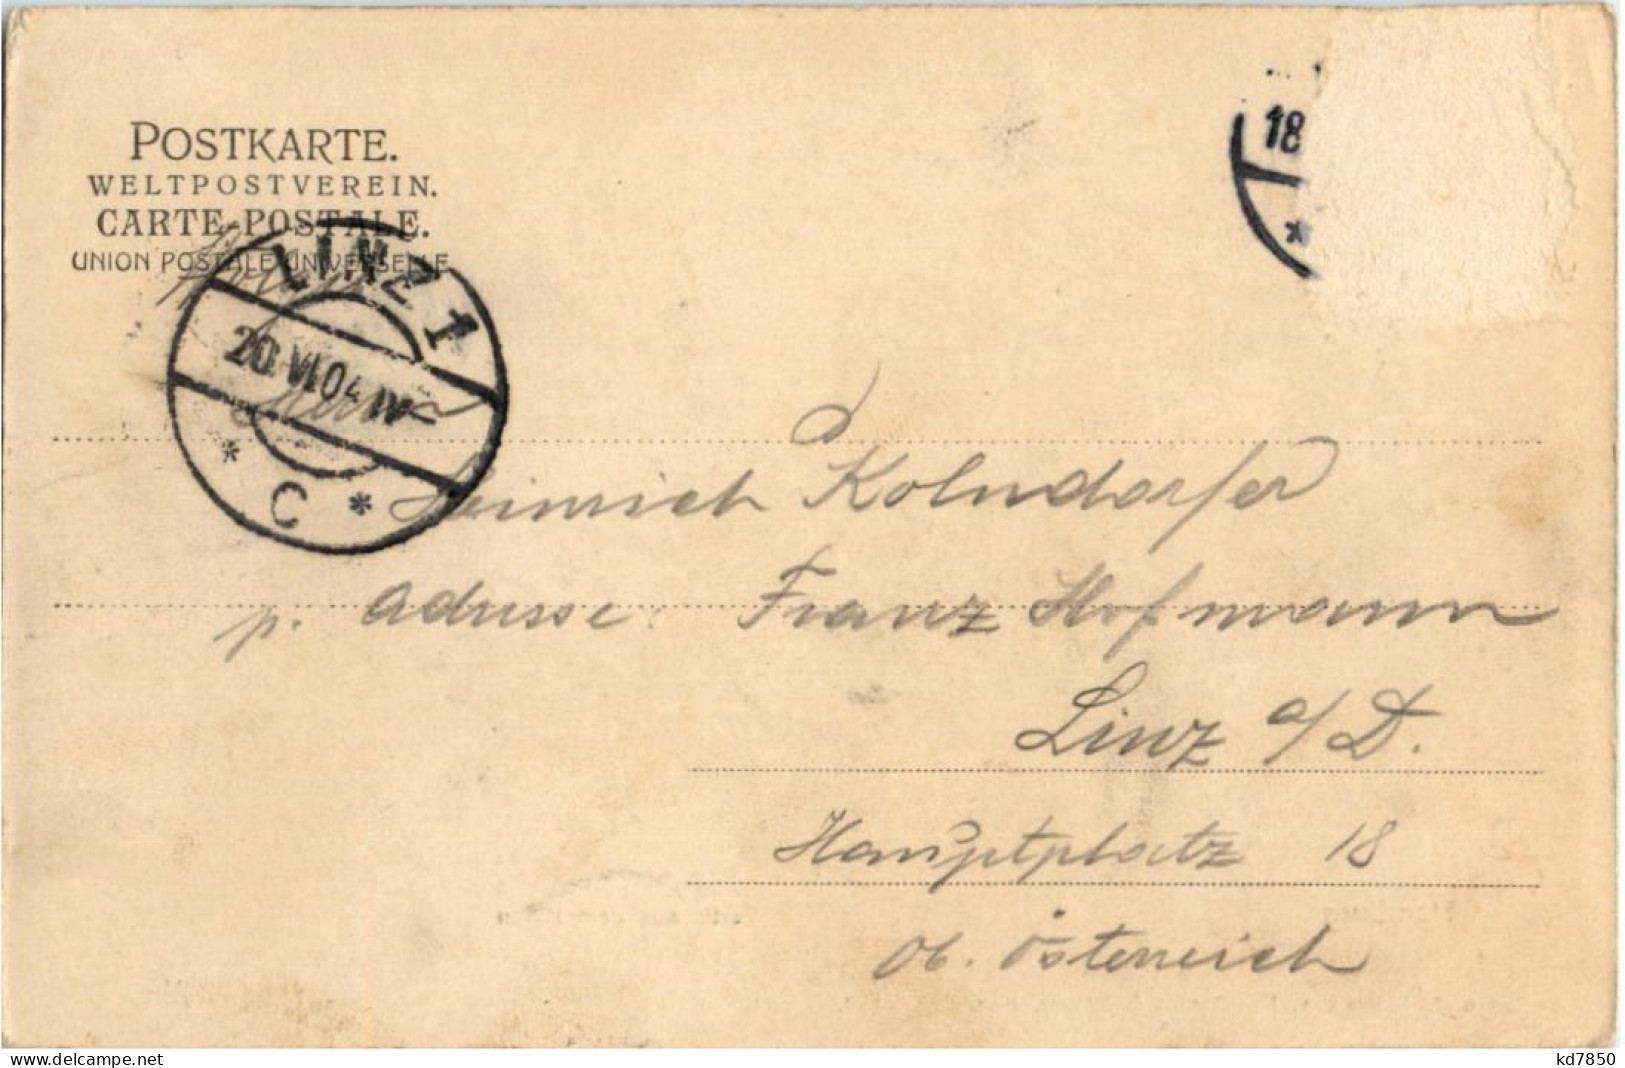 POSTKARTE.
WELTPOSTVEREIN.
CARTE-POSTALE.
UNION POSTALE UNIVERSELLE
18
LINZ 1
20.VI.04 IV
C
Herrn
Heinrich Kolndorfer
p. Adresse. Franz Hofmann
Linz a/D.
Hauptplatz 18
Ob. Österreich
www.delcampe.net
kd7850